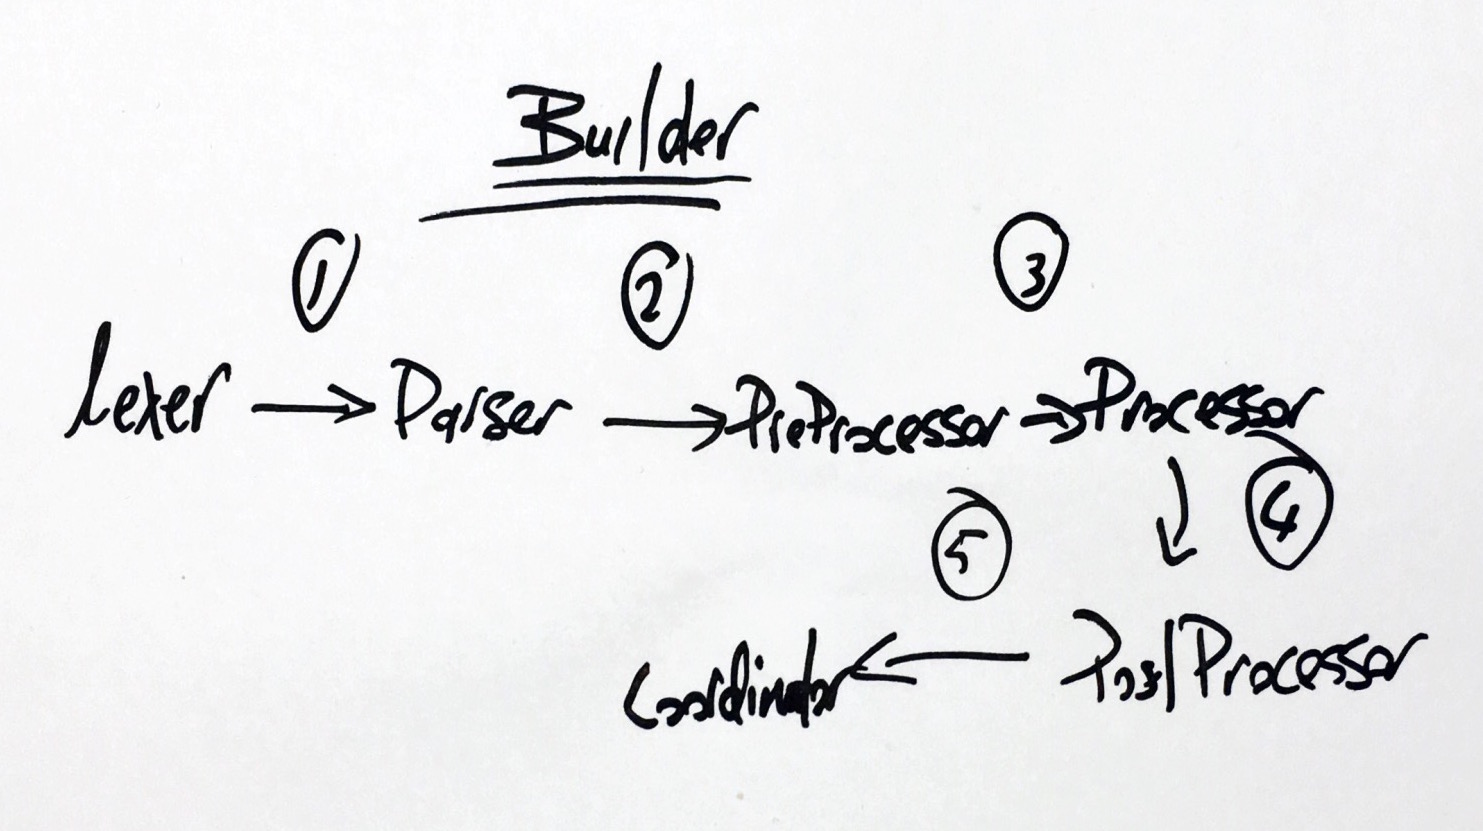 Builder
① ② ③
Lexer → Parser → PreProcessor → Processor
④
⑤
Coordinator ← PostProcessor